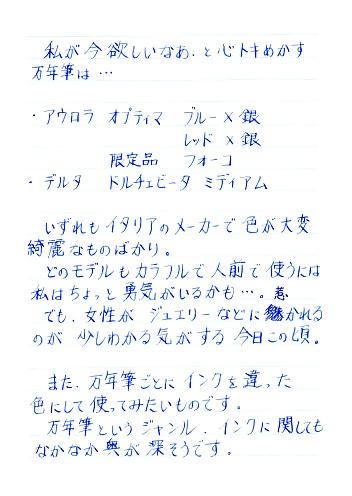 私が今欲しいなあ、と心トキめかす
万年筆は…
・アウロラ オプティマ ブルー×銀
レッド×銀
限定品 フォーコ
・デルタ ドルチェビータ ミディアム
いずれもイタリアのメーカーで色が大変
綺麗なものばかり。
どのモデルもカラフルで人前で使うには
私はちょっと勇気がいるかも…。
惹
でも、女性がジュエリーなどに かれる
のが少しわかる気がする今日この頃。
また、万年筆ごとにインクを違った
色にして使ってみたいものです。
万年筆というジャンル、インクに関しても
なかなか奥が深そうです。